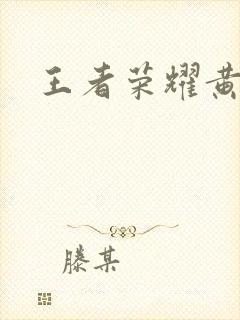 王者荣耀黄
滕某